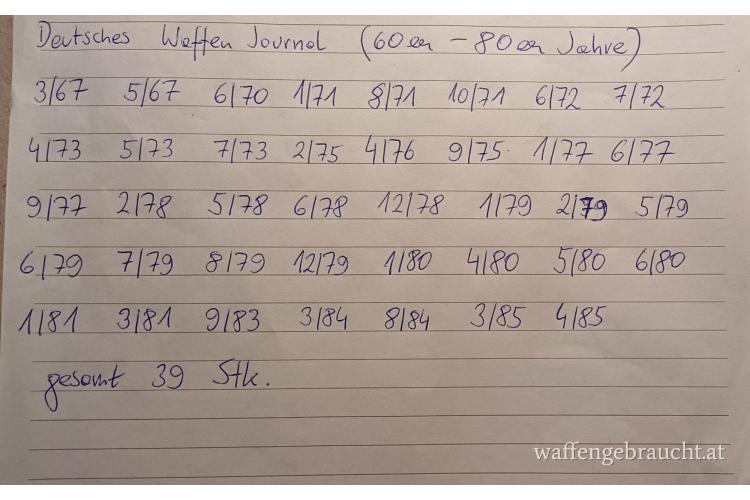 Deutsches Waffen Journal (60er - 80er Jahre)
3/67 5/67 6/70 1/71 8/71 10/71 6/72 7/72
4/73 5/73 7/73 2/75 4/76 9/75 1/77 6/77
9/77 2/78 5/78 6/78 12/78 1/79 2/79 5/79
6/79 7/79 8/79 12/79 1/80 4/80 5/80 6/80
1/81 3/81 9/83 3/84 8/84 3/85 4/85
gesamt 39 Stk.
waffengebraucht.at